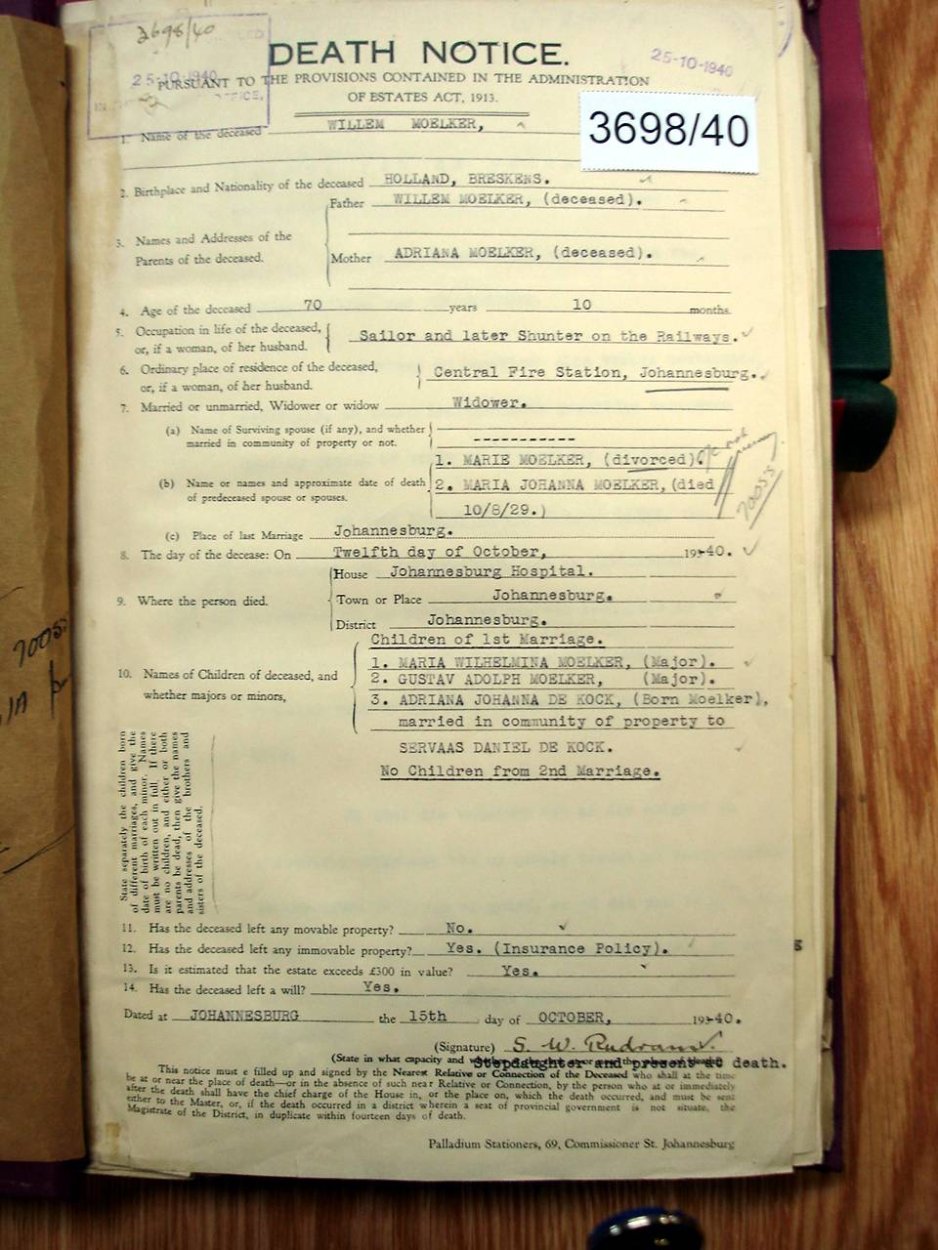 3698/40
25-10-1940
25-10-1940
DEATH NOTICE.
PURSUANT TO THE PROVISIONS CONTAINED IN THE ADMINISTRATION
OF ESTATES ACT, 1913.
3698/40
1. Name of the deceased WILLEM MOELKER,
2. Birthplace and Nationality of the deceased HOLLAND, BRESKENS.
3. Names and Addresses of the Parents of the deceased.
Father WILLEM MOELKER, (deceased).
Mother ADRIANA MOELKER, (deceased).
4. Age of the deceased 70 years 10 months.
5. Occupation in life of the deceased,
or, if a woman, of her husband.
Sailor and later Shunter on the Railways.
6. Ordinary place of residence of the deceased,
or, if a woman, of her husband.
Central Fire Station, Johannesburg.
7. Married or unmarried, Widower or widow Widower.
(a) Name of Surviving spouse (if any), and whether
married in community of property or not.
-----------
(b) Name or names and approximate date of death
of predeceased spouse or spouses.
1. MARIE MOELKER, (divorced).
2. MARIA JOHANNA MOELKER, (died
10/8/29.)
70053
(c) Place of last Marriage Johannesburg.
8. The day of the decease: On Twelfth day of October, 1940.
9. Where the person died.
House Johannesburg Hospital.
Town or Place Johannesburg.
District Johannesburg.
10. Names of Children of deceased, and
whether majors or minors,
Children of 1st Marriage.
1. MARIA WILHELMINA MOELKER, (Major).
2. GUSTAV ADOLPH MOELKER, (Major).
3. ADRIANA JOHANNA DE KOCK, (Born Moelker),
married in community of property to
SERVAAS DANIEL DE KOCK.
No Children from 2nd Marriage.
State separately the children born
of different marriages, and give the
date of birth of each minor. Names
must be written out in full. If there
are no children, and either or both
parents be dead, then give the names
and addresses of the brothers and
sisters of the deceased.
11. Has the deceased left any movable property? No.
12. Has the deceased left any immovable property? Yes. (Insurance Policy).
13. Is it estimated that the estate exceeds £300 in value? Yes.
14. Has the deceased left a will? Yes.
Dated at JOHANNESBURG the 15th day of OCTOBER, 1940.
(Signature)
(State in what capacity and
Stepdaughter and present at death.
This notice must e filled up and signed by the Nearest Relative or Connection of the Deceased who shall at the time
be at or near the place of death—or in the absence of such near Relative or Connection, by the person who at or immediately
after the death shall have the chief charge of the House in, or the place on, which the death occurred, and must be sent
either to the Master, or, if the death occurred in a district wherein a seat of provincial government is not situate, the
Magistrate of the District, in duplicate within fourteen days of death.
Palladium Stationers, 69, Commissioner St. Johannesburg